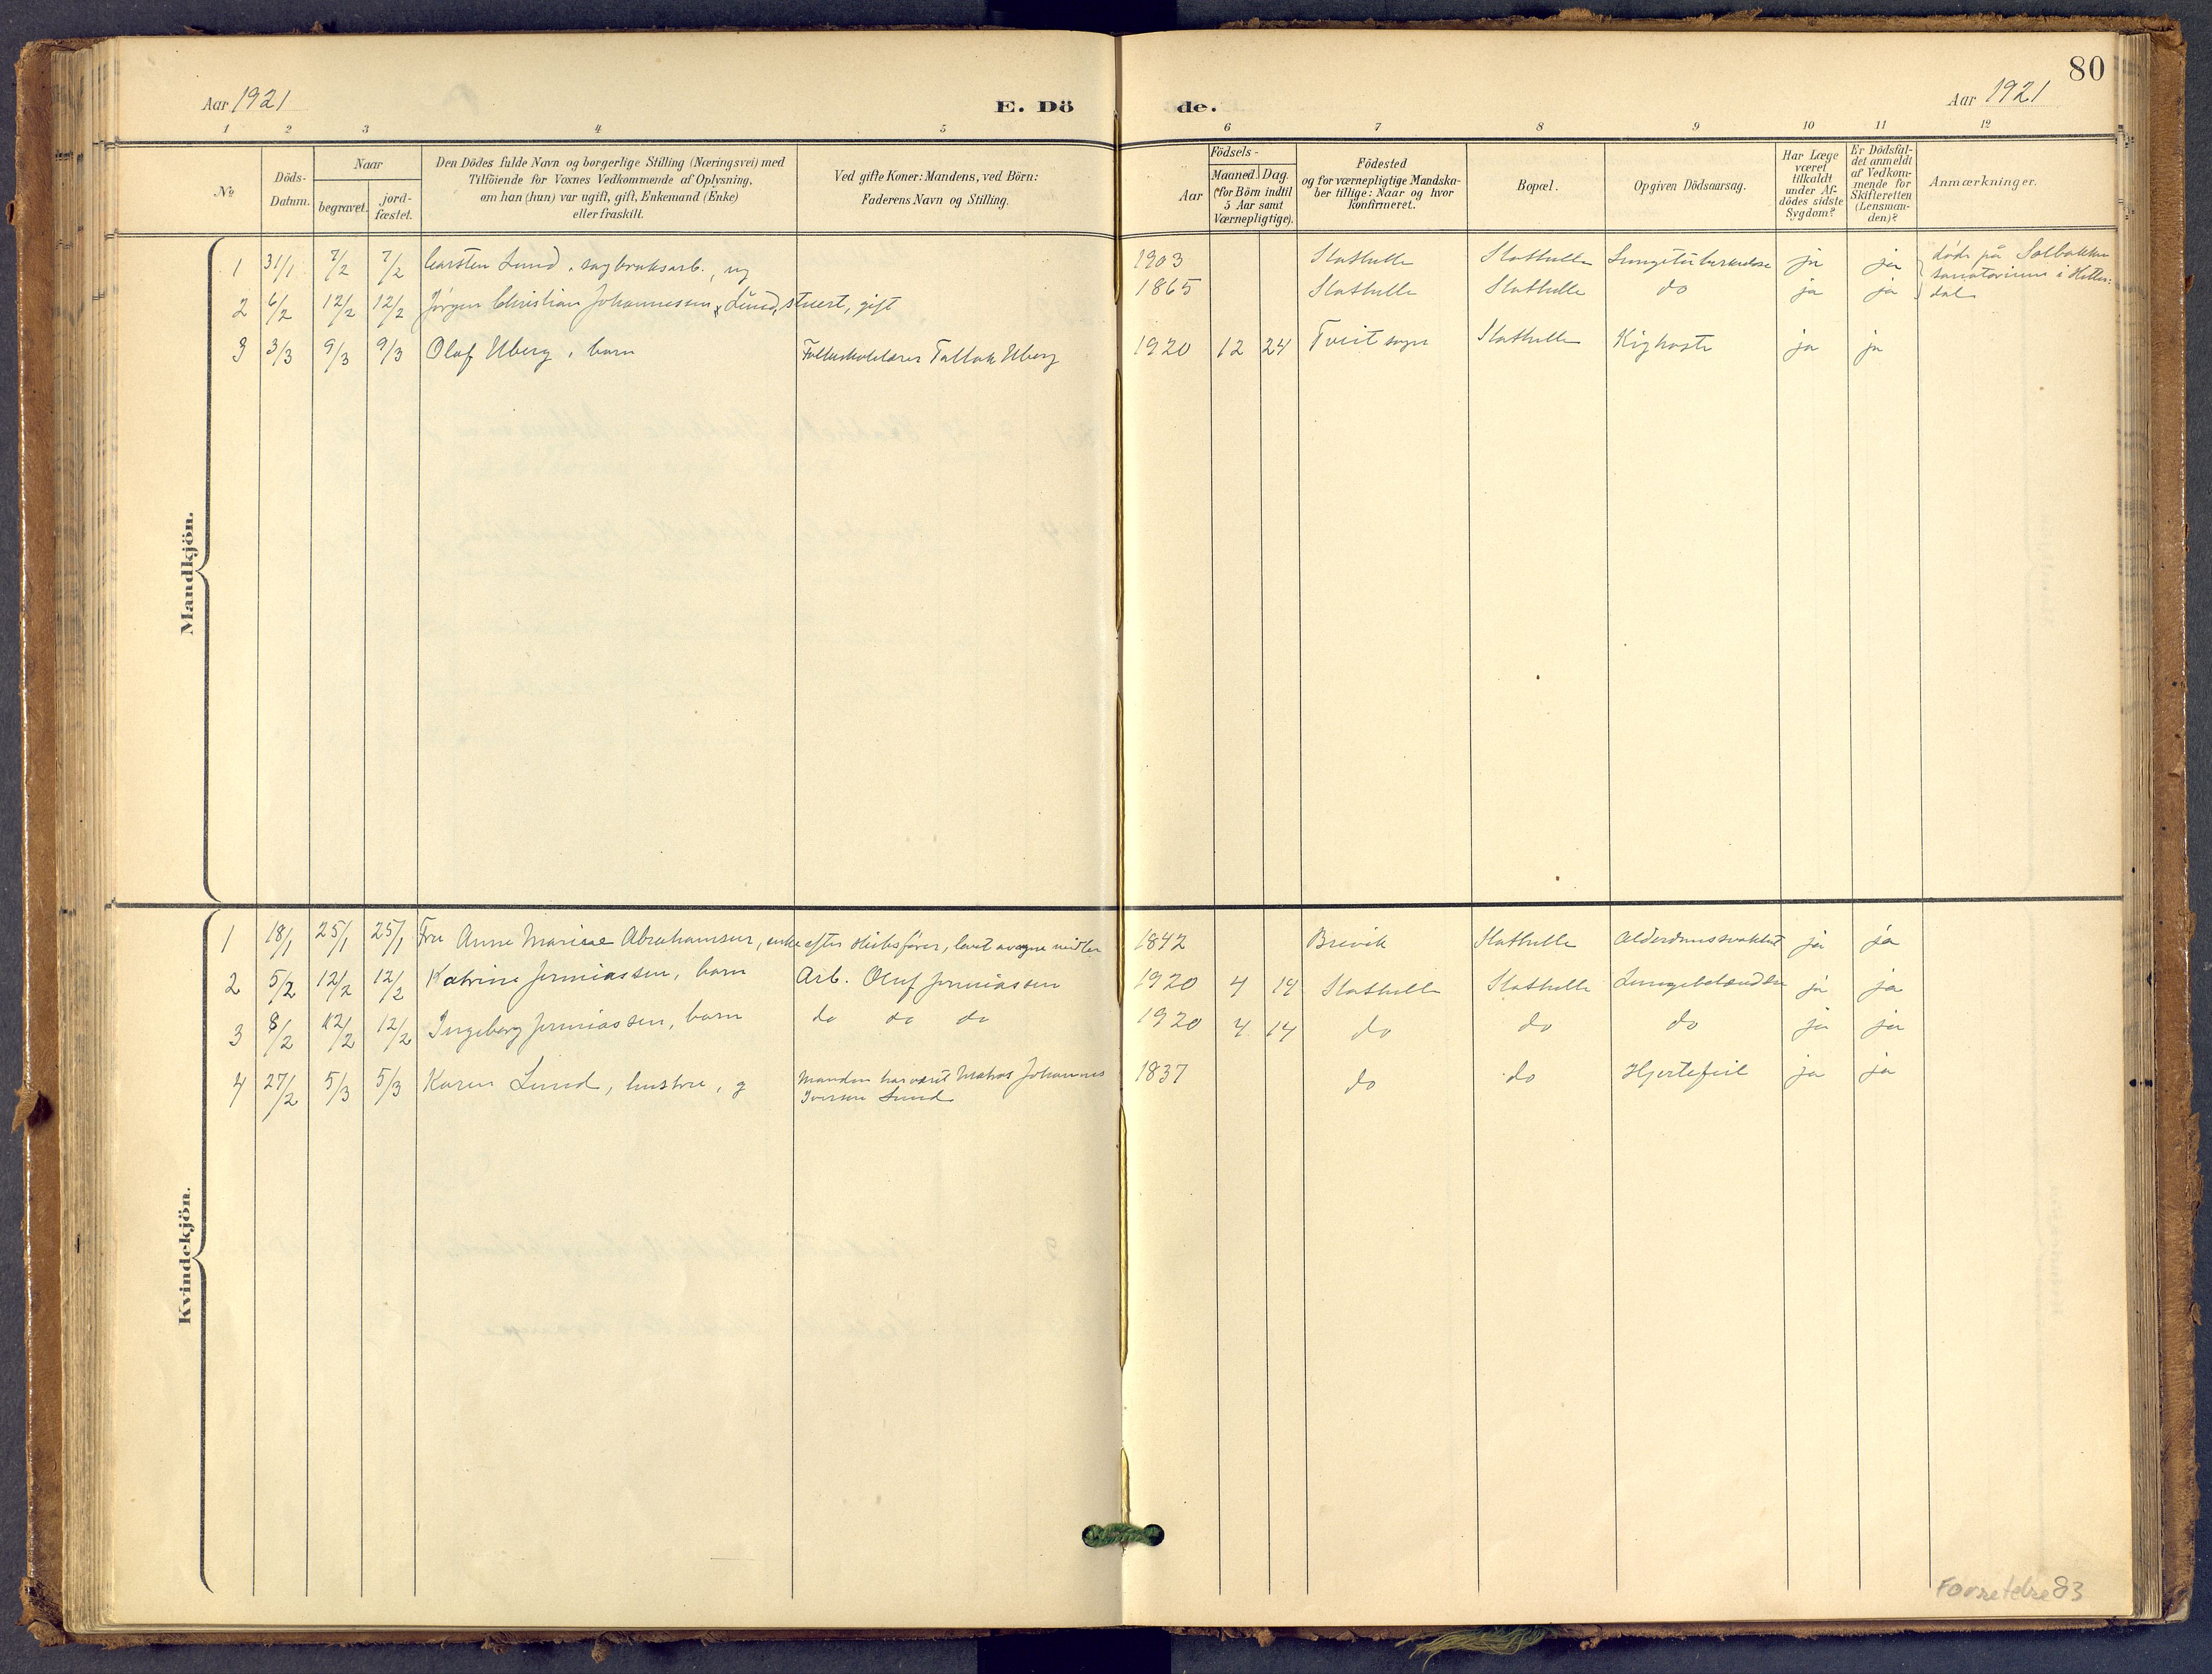 80
Aar 1921
E. Dö
de.
Aar 1921
1 2 3 4 5
6 7 8 9 10 11 12
No
Döds-Datum.
Naar
begravet.
jord-fæstet.
Den Dödes fulde Navn og borgerlige Stilling (Næringsvei) med
Tilföiende for Voxnes Vedkommende af Oplysning,
om han (hun) var ugift, gift, Enkemand (Enke)
eller fraskilt.
Ved gifte Koner: Mandens, ved Börn:
Faderens Navn og Stilling.
Födsels-
Aar
Maaned. Dag.
(for Börn indtil
5 Aar samt
Værnepligtige).
Födested
og for værnepligtige Mandska-
ber tillige: Naar og hvor
konfirmeret.
Bopæl.
Opgiven Dödsaarsag.
Har Læge
været
tilkaldt
under Af-
dödes sidste
Sygdom?
Er Dödsfal-
det anmeldt
af Vedkom-
mende for
Skifteretten
(Lensman-
den)?
Anmærkninger.
Mandkjön.
1 31/1 7/2 7/2 Carsten Lund, sagbruksarb., ug 1903 Stathelle Stathelle Lungetuberkulose ja ja døde på Solbakken
sanatorium i Hitter-
dal
2 6/2 12/2 12/2 Jørgen Christian Johannessen Lund, stuert, gift 1865 Stathelle Stathelle do ja ja
3 3/3 9/3 9/3 Olaf Uberg, barn Folkeskolelærer Tallak Uberg 1920 12 24 Tveit sogn Stathelle Kighoste ja ja
Kvindekjön.
1 18/1 25/1 25/1 Fru Anne Marie Abrahamsen, enke efter skibsfører, levet av egne midler 1842 Brevik Stathelle Alderdomssvakhet ja ja
2 5/2 12/2 12/2 Katrine Jermiassen, barn Arb. Oluf Jermiassen 1920 4 14 Stathelle Stathelle Lungebetændelse ja ja
3 8/2 12/2 12/2 Ingeborg Jermiassen, barn do do do 1920 4 14 do do do ja ja
4 27/2 5/3 5/3 Karen Lund, hustru, g Manden har været Matros Johannes
Iversen Lund 1837 do do Hjertefeil ja ja
83